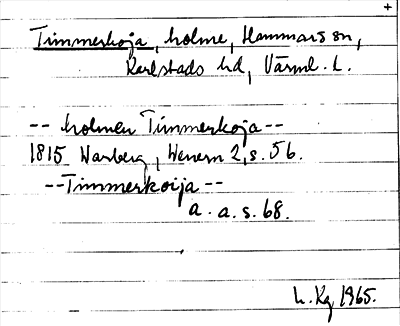 +
Timmerkoja, holme, Hammarö sn,
Karlstads hd, Värml. l.
-- holmen Timmerkoja --
1815 Warberg, Wenern 2, s. 56.
-- Timmerkoija --
a. a. s. 68.
h. Kg 1965.